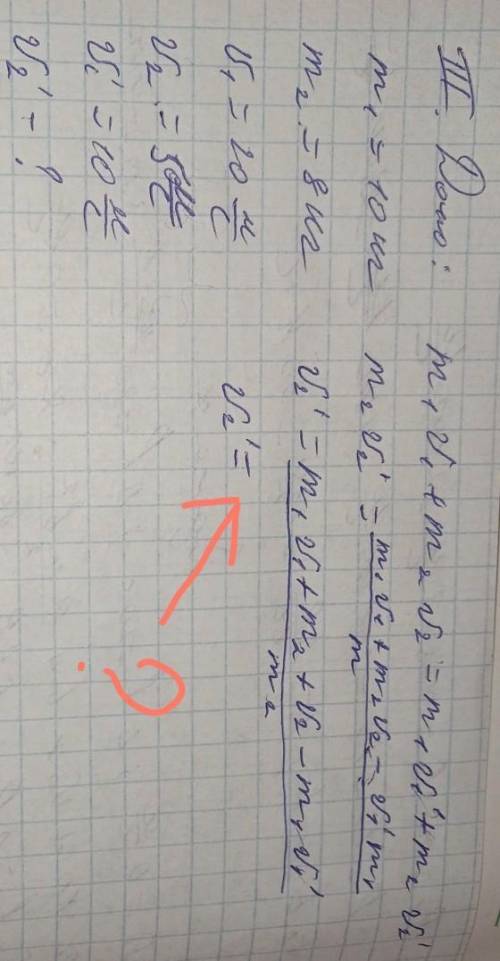 III. Дано:
m₁ = 10 кг
m₂ = 8 кг
v₁ = 20 м/с
v₂ = 5 м/с
v₁' = 10 м/с
v₂' - ?
m₁ v₁ + m₂ v₂ = m₁ v₁' + m₂ v₂'
m₂ v₂' = (m₁ v₁ + m₂ v₂ = v₁' m₁) / m
v₂' = (m₁ v₁ + m₂ + v₂ - m₁ v₁') / m₂
v₂' =
?